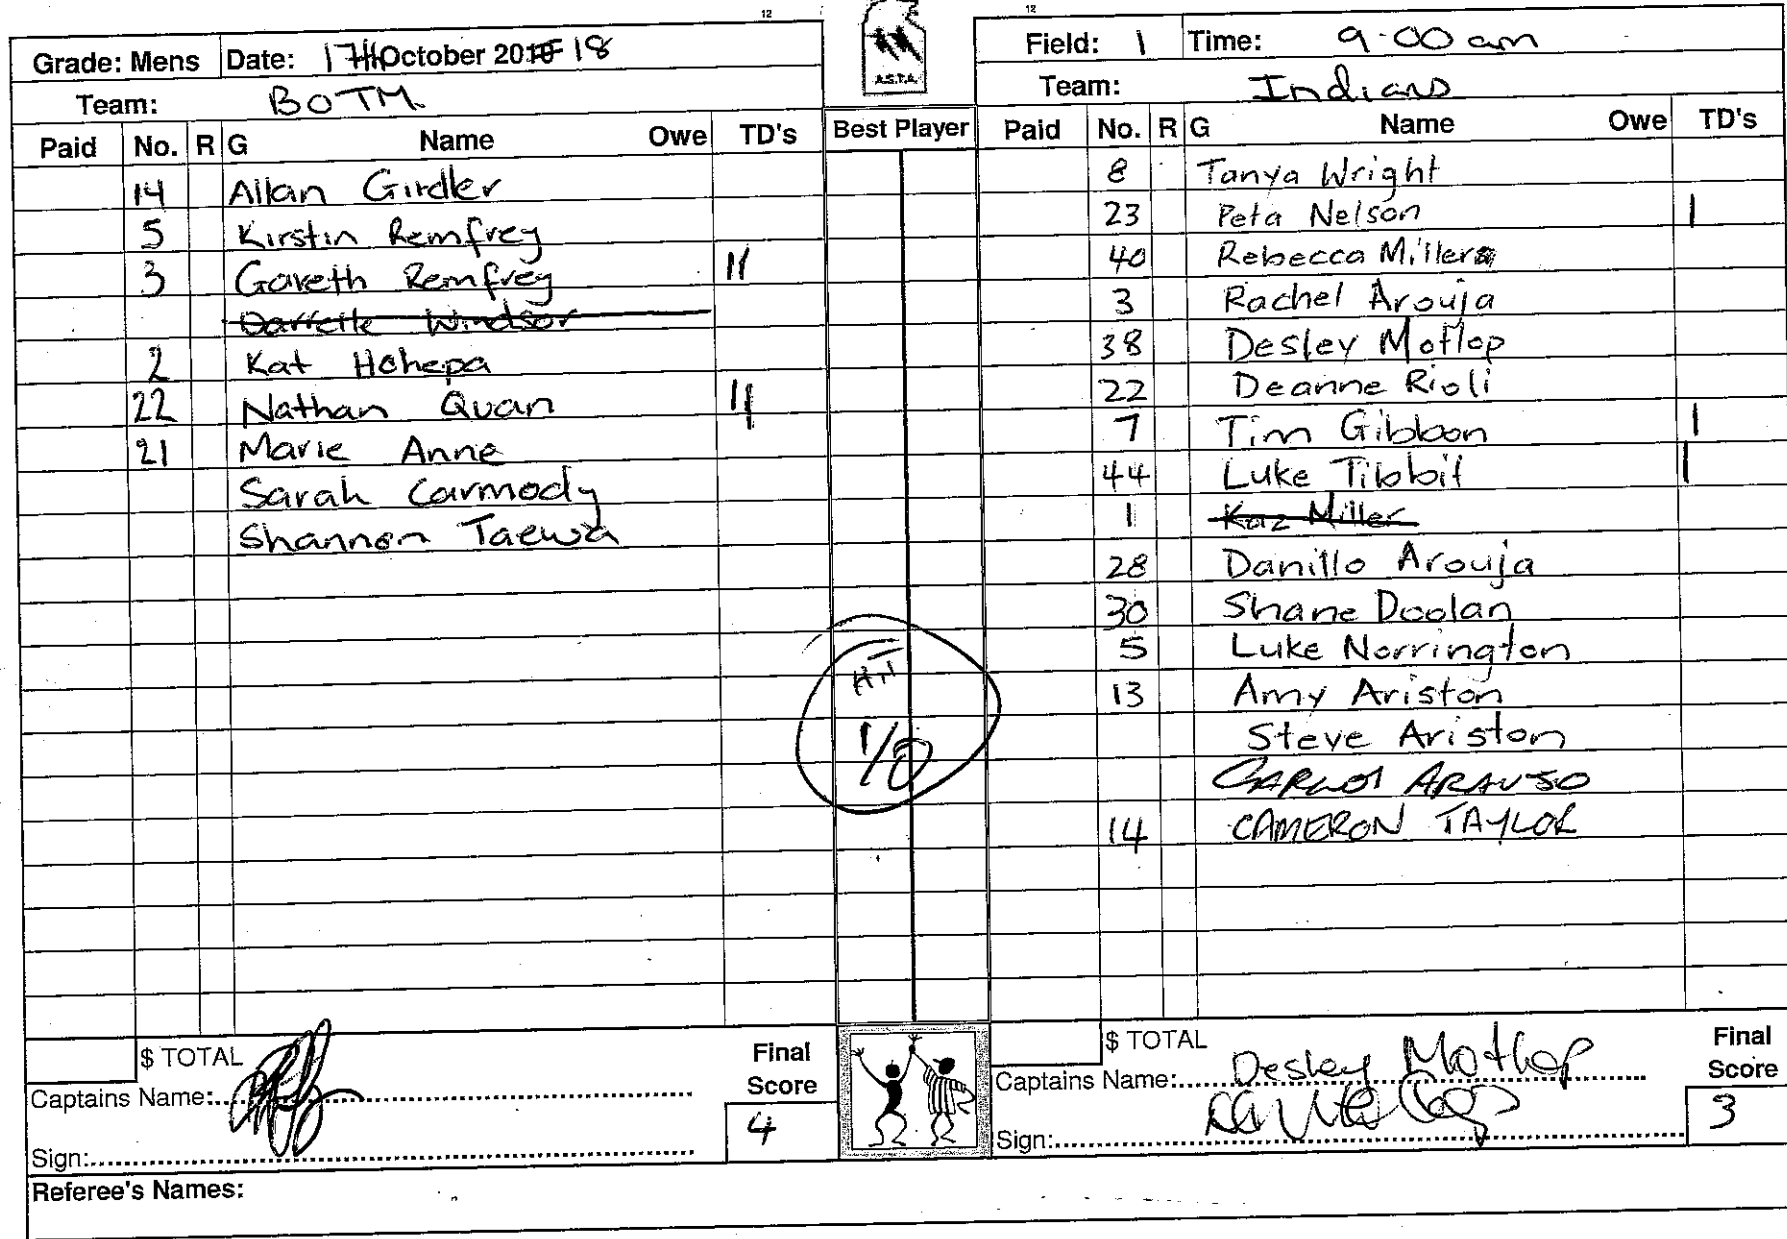 12
12
Grade: Mens Date: 17th October 2018 18
Team: BOTM.
Paid No. R G Name Owe TD's
14 Allan Girdler
5 Kirstin Remfrey
3 Gareth Remfrey 11
Darrelle Windsor
2 Kat Hohepa
22 Nathan Quan 11
21 Marie Anne
Sarah Carmody
Shannon Taewa
$ TOTAL
Captains Name:
Sign:
Final Score
4
A.S.T.A.
Best Player
HT
1/0
Field: 1 Time: 9.00 am
Team: Indians
Paid No. R G Name Owe TD's
8 Tanya Wright
23 Peta Nelson 1
40 Rebecca Miller
3 Rachel Arouja
38 Desley Motlop
22 Deanne Rioli
7 Tim Gibbon 1
44 Luke Tibbit 1
1 Kaz Miller
28 Danillo Arouja
30 Shane Doolan
5 Luke Norrington
13 Amy Ariston
Steve Ariston
CARLOS ARAUJO
14 CAMERON TAYLOR
$ TOTAL
Captains Name: Desley Motlop
Sign:
Final Score
3
Referee's Names: